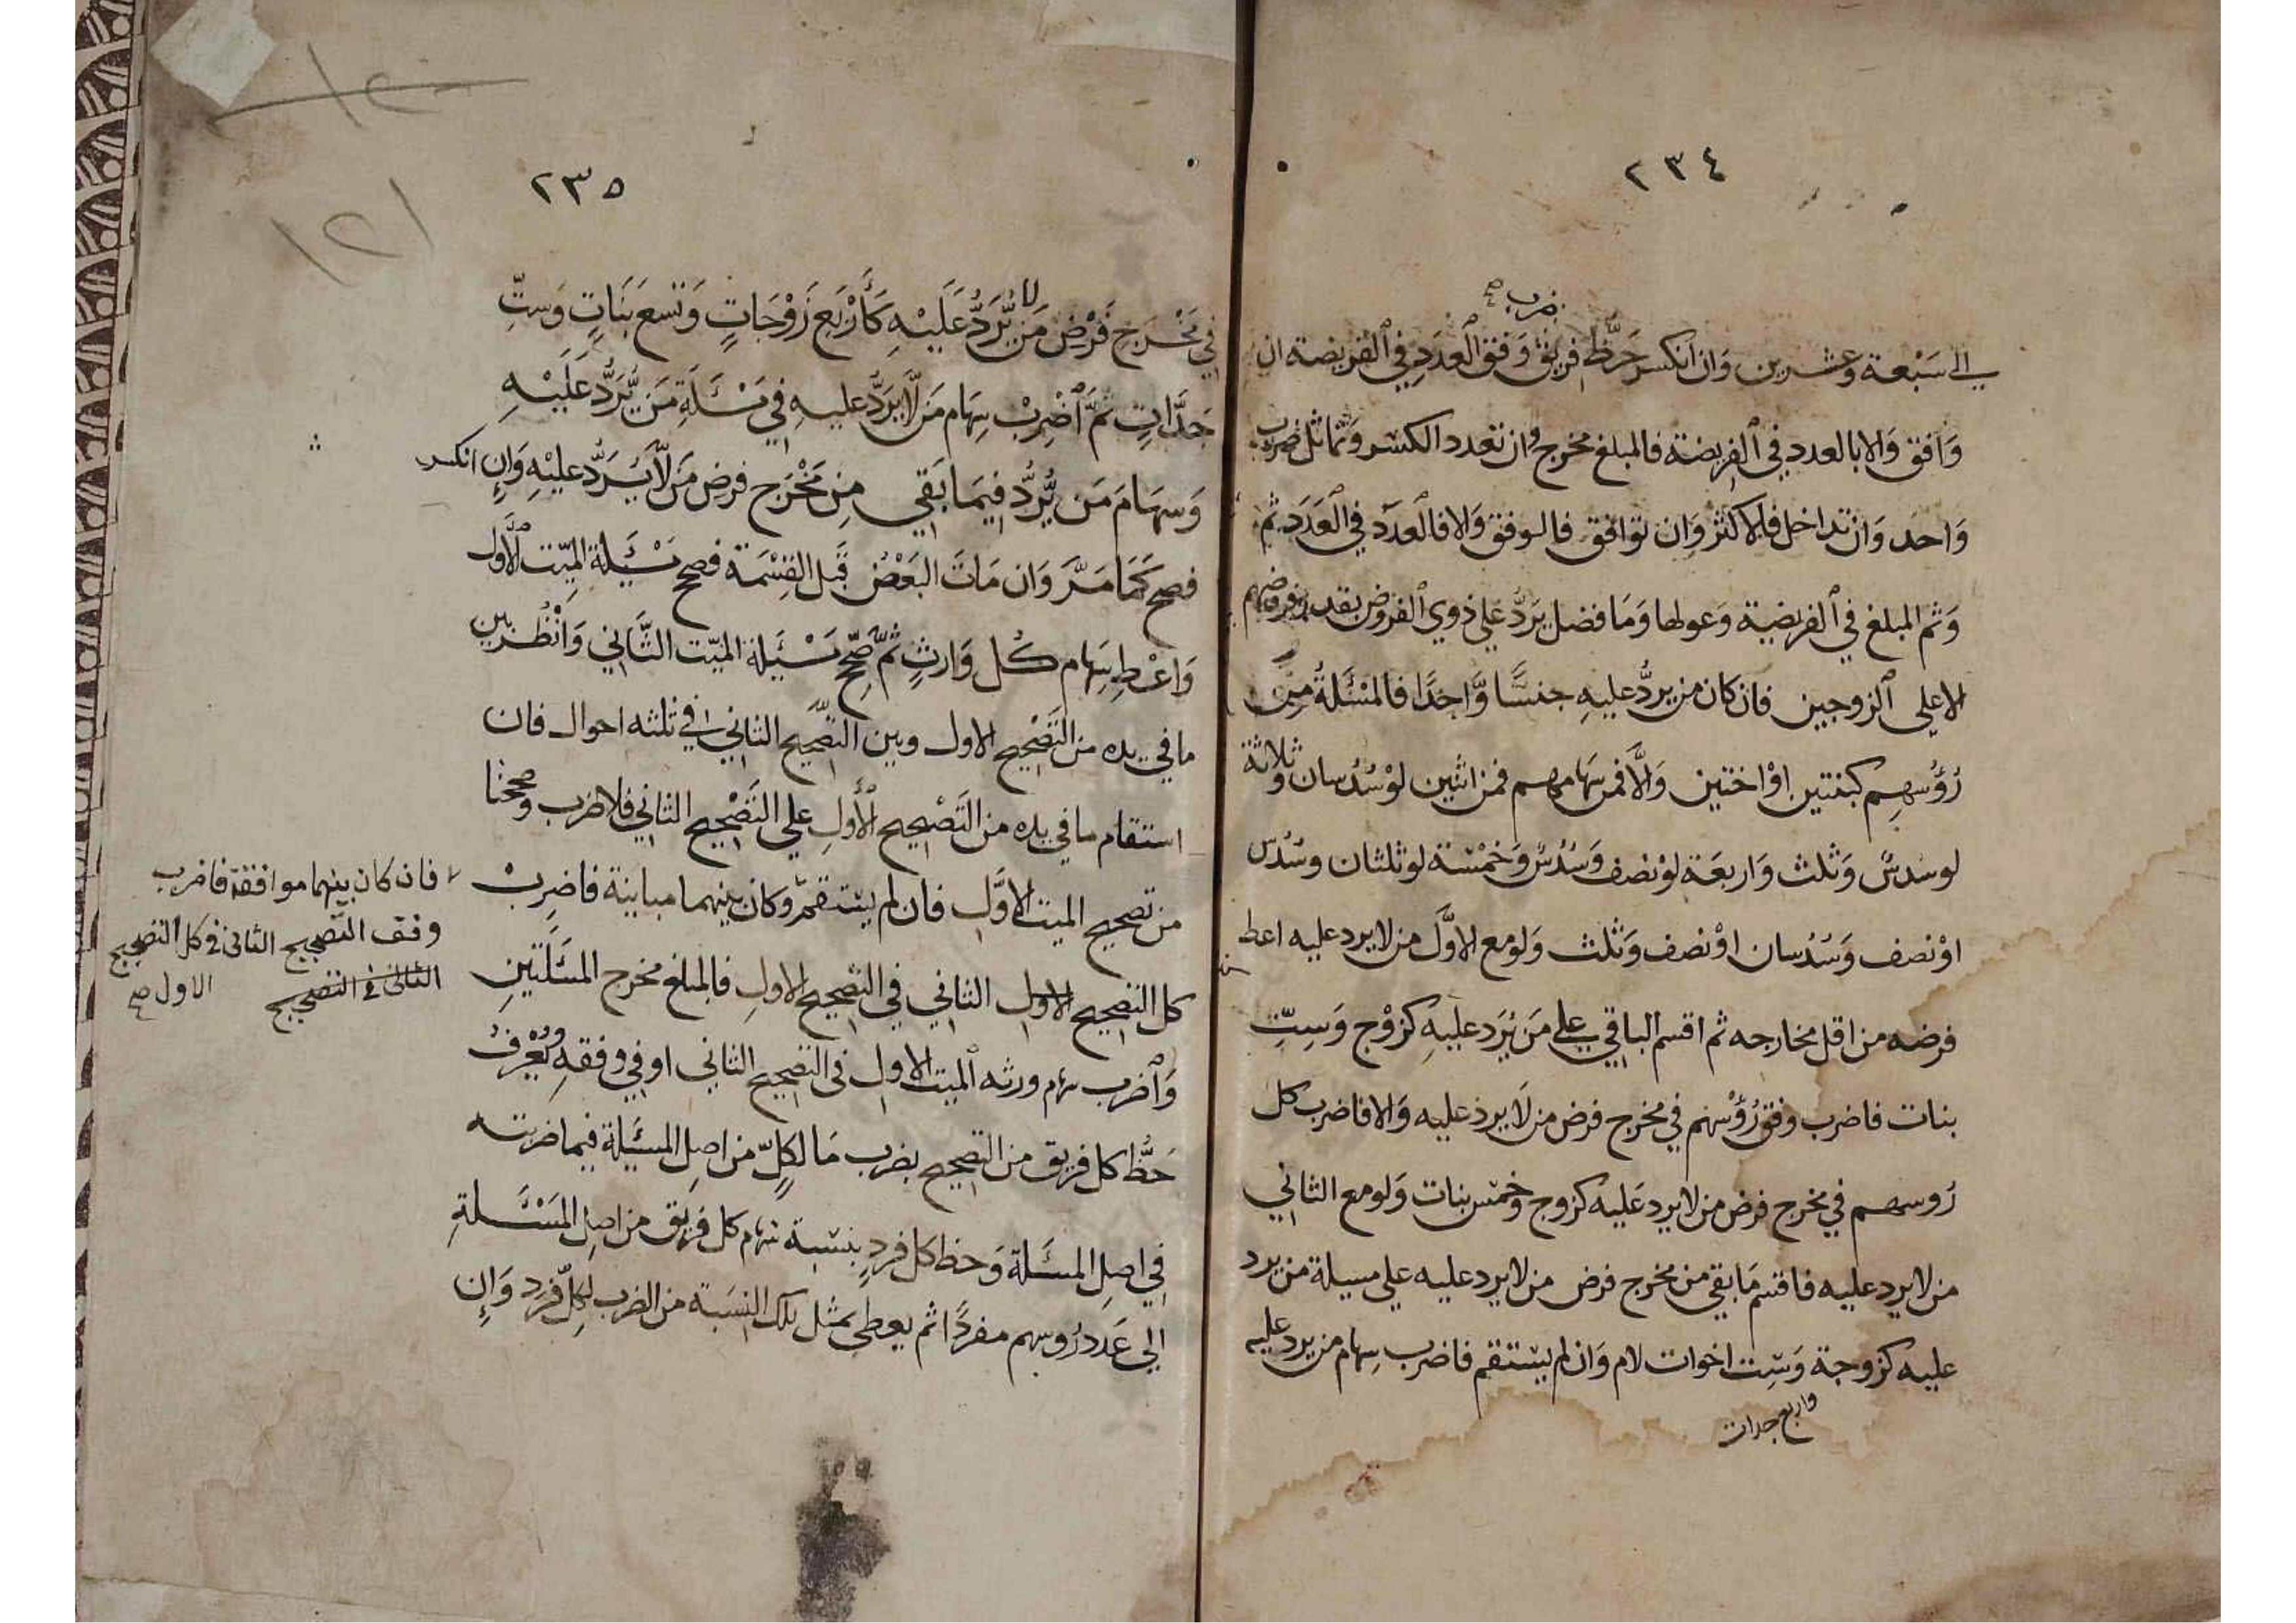 ٢٣٤
ضرب صح
الى سَبْعة وعشرين وَان انكسر حَظُّ فريق وَفق العدَدِ في الفريضة ان
وَافق وَالا بالعدد في الفريضة فالمبلغ مخرج وان تعدد الكسر وَتماثل ضرب
وَاحد وَان تداخل فالاكثر وَان توافق فالوفق وَالا فالعدَد في العَدَد ثم
وَثم المبلغ في الفريضة وَعولها وَمَا فضل يَردُّ على ذوي الفروض بقدر فروضهم
الا على الزوجين فان كان من يردُّ عليهِ جنسًا وَّاحِدًا فالمسْئَلةُ مِن
رُؤُسهِم كبنتين اوْ اختين وَالَّا فمن سَهامهم فمن اثنين لوْ سُدُسان وثلاثة
لو سدسٌ وَثلث وَاربعَة لوْ نصف وَسُدُسٌ وَخمْسَة لو ثلثان وسُدُس
اوْ نصف وَسُدُسان اوْ نصف وَثلث وَلو مع الاوَّل من لا يرد عليه اعط
فرضه من اقل مخارجه ثم اقسم الباقي على مَن يُرَد عليهِ كزوْج وَسِتّ
بنات فاضرب وفق رُؤْسهم في مخرج فرض من لَا يرد عليه وَالا فاضرب كل
رُوسهم في مخرج فرض من لا يرد عَليه كزوج وخمْس بنات وَلو مع الثاني
من لا يرد عليه فاقسم مَا بقي من مخرج فرض من لا يرد عليه على مسيلة من يرد
عليه كزوجة وَسِت اخوات لام وَان لم يستقم فاضرب سِهام من يرد عليه
واربع جدات
٢٣٥
في مَخْرَجِ فَرْضِ مَن لا يُّرَدُّ عَلَيْهِ كَأَرْبَعِ زَوْجَاتٍ وَتسعَ بَنَاتٍ وَستِّ
جَدَّاتٍ ثمَّ اضْرِبْ سِهَام مَن لَّا يرَدُّ عليهِ في مَسْئَلَةِ مَن يُّرَدُّ عَلَيْهِ
وَسِهَامَ مَن يُّرَدُّ فيمَا بَقي مِن مَخْرَجِ فرض مَن لَّا يُرَدُّ عليْهِ وَاِن انكسر
فصح كَمَا مَرَّ وَان مَاتَ البَعْضُ قَبل القِسْمَة فصحح مَسْئَيلة الميّت الأول
وَاعْطِ سِهَام كُل وَارثٍ ثُمَّ صَحِّح مَسْئَيلة الميّت الثَّاني وَانظُر بين
ما في يده من التَصْحِيح الاول وبين التصْحيح الثاني في ثلثه احوال فان
استقام ما في يده من التَصْحِيح الأَولِ على التَصْحيح الثاني فلا ضرب وصحتا
من تصحيح الميت الاوَّل فان لم يستقم وكان بينهما مباينة فاضرِبْ
كل التصحيح الاول الثاني في التصحيح الاولِ فالمبلغ مخرج المسَلَتَينِ
وَاضرب سهام ورثه الميت الاول في التصحيح الثاني او في وفقهِ ويُعْرَفُ
حَظُّ كل فريق من التصحيح بضرب مَا لِكلٍّ من اصلِ المسَيلة فيما ضربته
في اصلِ المسئَلة وَحظ كل فردٍ بنسبة سهام كل فريق من اصلِ المَسْئَلَةِ
الى عَدد رُوسهم مفردًا ثم يعطى بمثل تلك النسَبة من الضرب لكلِّ فرد وَاِن
فان كان بينهما موافقة فاضرب
وفق التصحيح الثانى فى كل التصحيح
الثانى فى التصحيح الاول صح